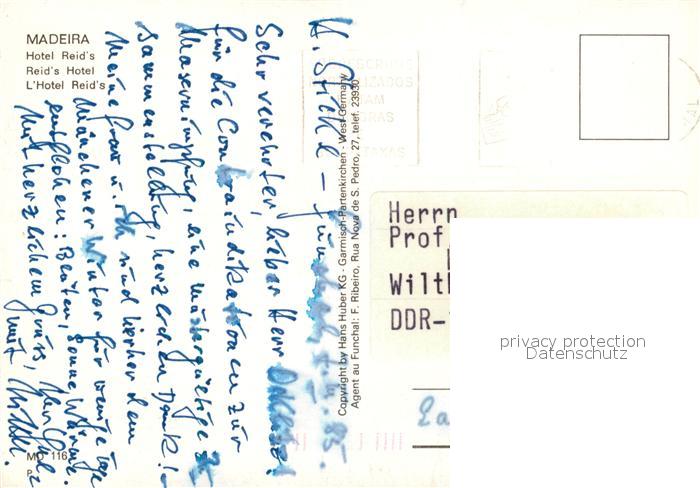 MADEIRA
Hotel Reid's
Reid's Hotel
L'Hotel Reid's
H. Stickl –
Sehr verehrter, lieber Herr
für die Contraindikationen zur
Masernimpfung, eine mustergültige Zu-
sammenstellung, herzlichen Dank!
Meine Frau u. ich sind hierher dem
Münchener Winter für wenige Tage
entflohen: Blüten, Sonne, Wärme.
Mit herzlichem Gruss, Ihr
Copyright by Hans Huber KG - Garmisch-Partenkirchen - West-Germany
Agent au Funchal: F. Ribeiro, Rua Nova de S. Pedro, 27, telef. 23930
MD 116
Herrn
Prof.
Wilth
DDR-
privacy protection
Datenschutz